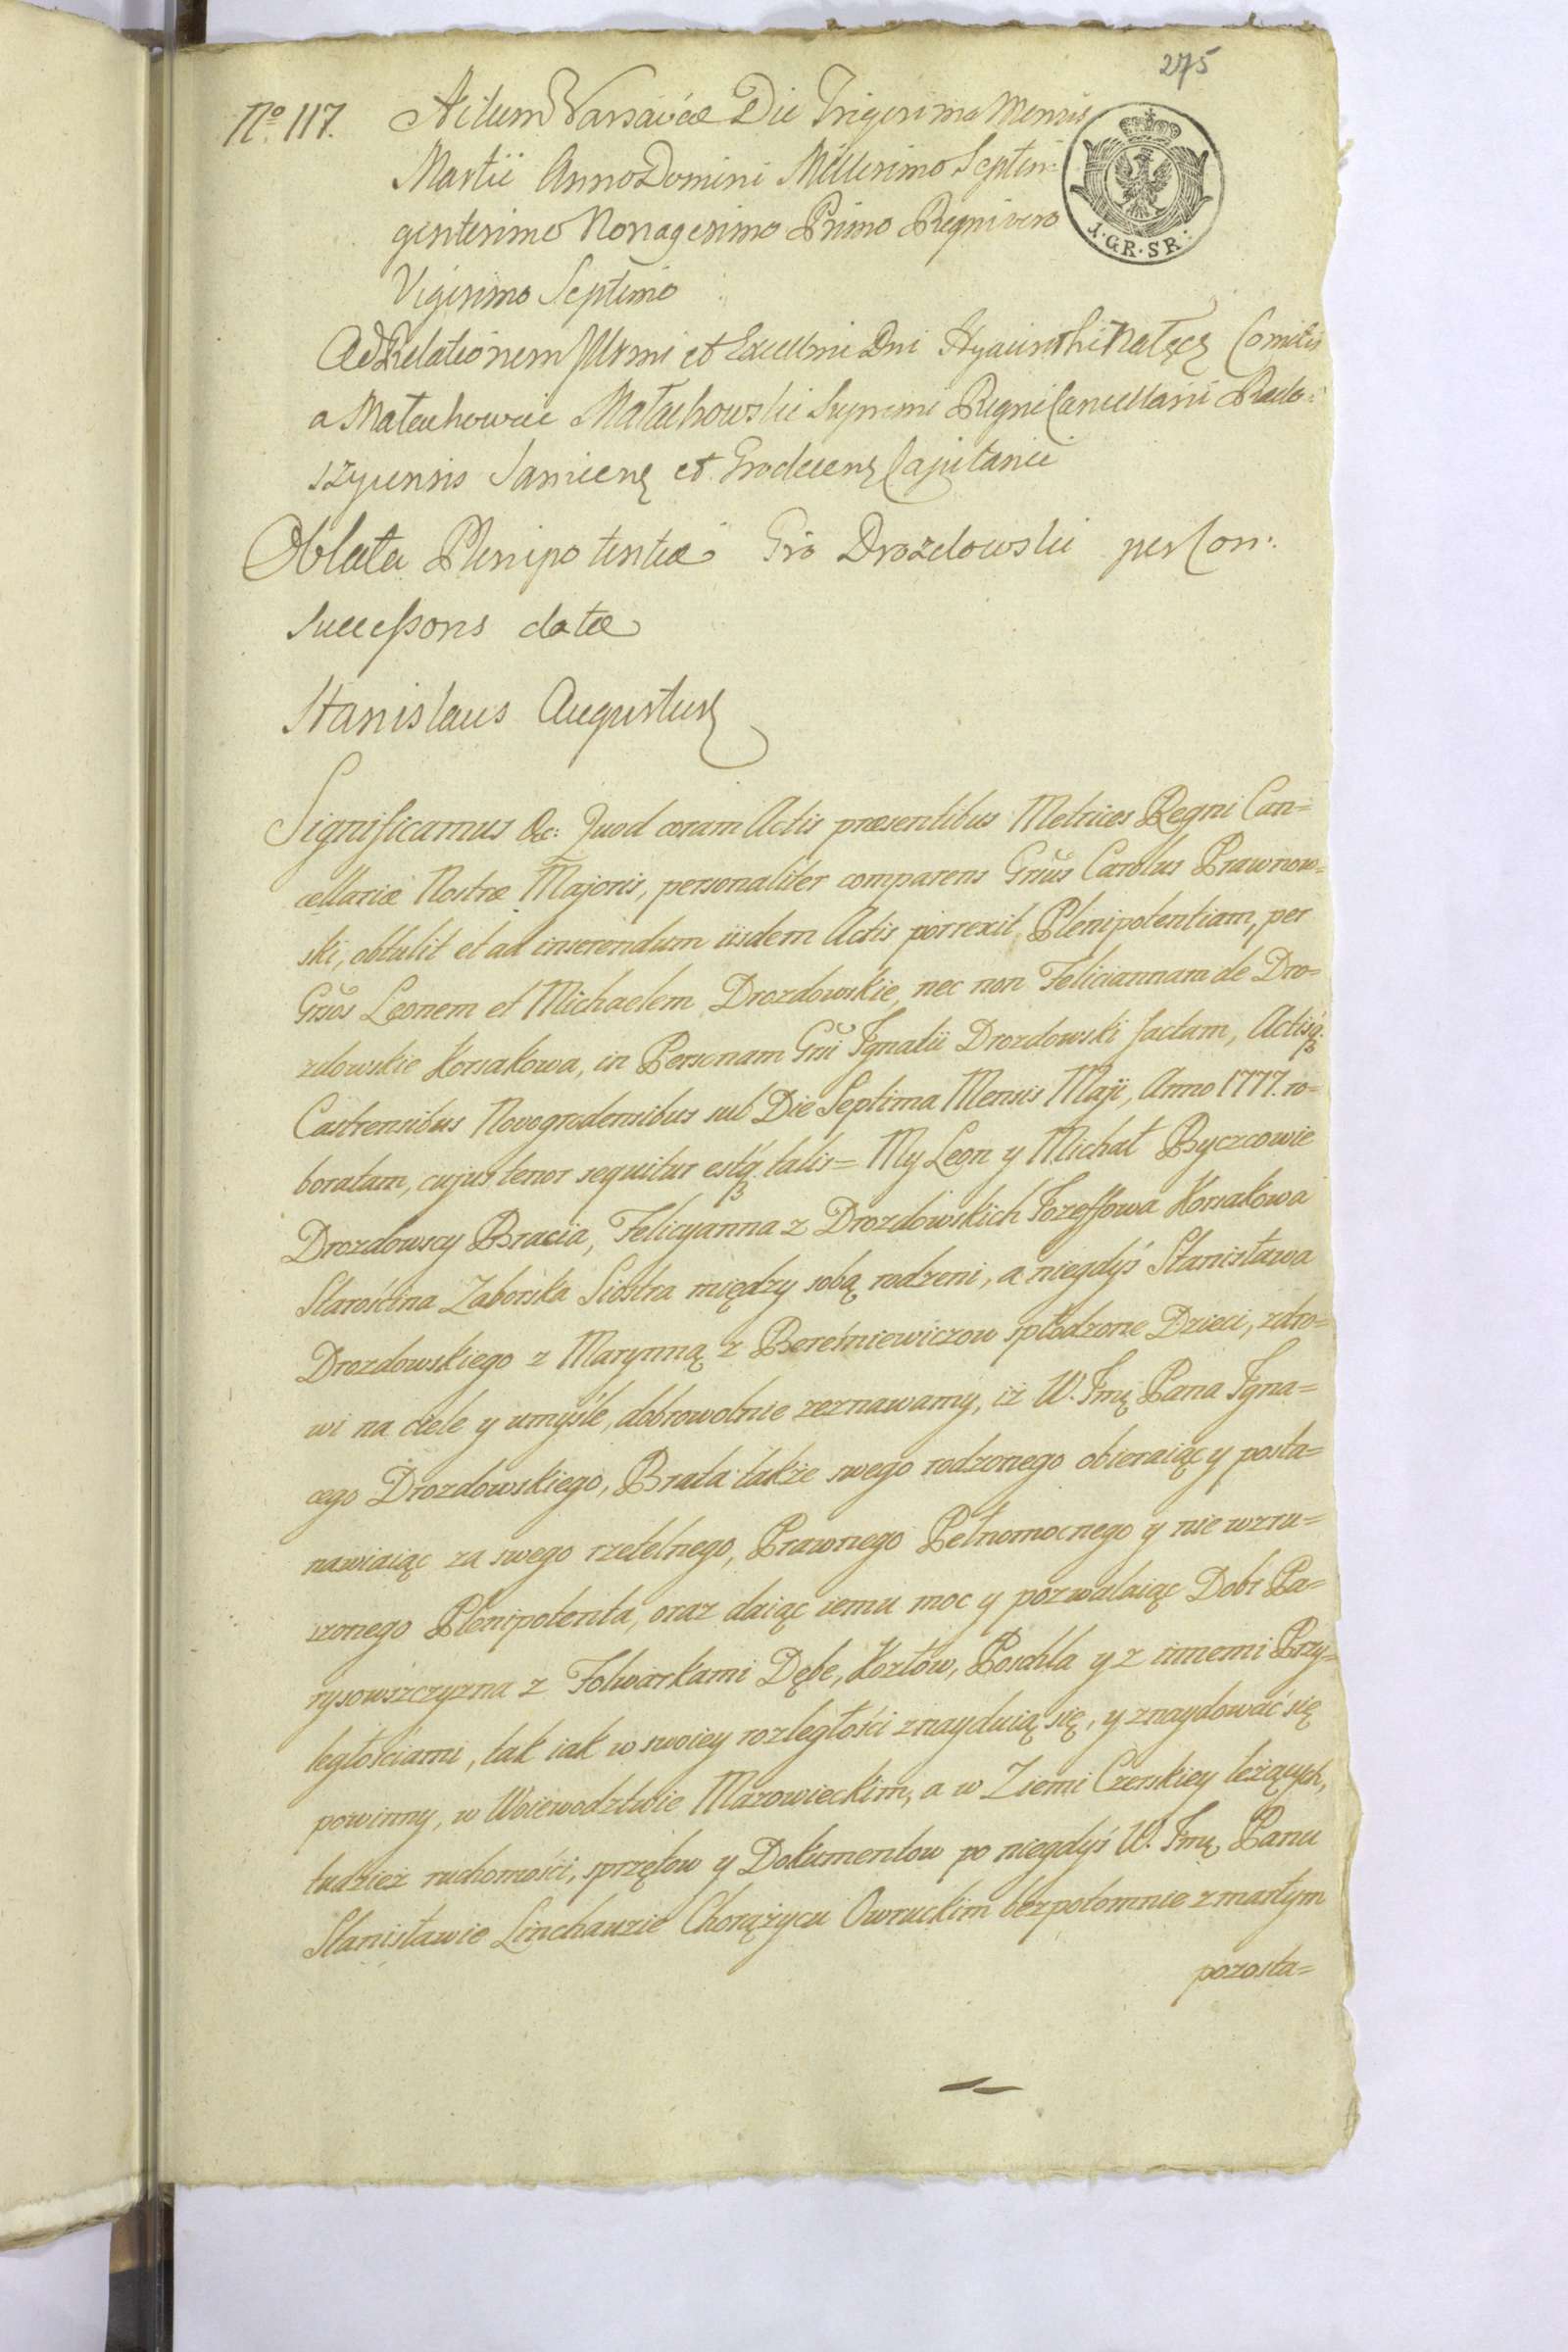 275
No 117. Actum Varsaviæ Die Trigesima Mensis
Martii Anno Domini Millesimo Septin:
gentesimo Nonagesimo Primo Regni vero
Vigesimo Septimo
1·GR·SR·
Ad Relationem Illrmi et Excellmi Dni Hyacinthi Nałęcz Comitis
a Małachowice Małachowski Supremi Regni Cancellarii Rado:
szycensis Saniecens et Grodecens Capitanei
Oblata Plenipotentiæ Gso Drozdowski per Con:
Successores datæ
Stanislaus Augustus
Significamus &c: Quod coram Actis præsentibus Metrices Regni Can=
cellariæ Nostræ Majoris, personaliter comparens Grsus Carolus Prawnow=
ski, obtulit et ad inserendum iisdem Actis porrexit Plenipotentiam, per
Grsos Leonem et Michaelem Drozdowskie, nec non Feliciannam de Dro=
zdowskie Korsakowa, in Personam Grsi Ignatii Drozdowski factam, Actisq;
Castrensibus Novogrodensibus sub Die Septima Mensis Maji, Anno 1777. ro=
boratam, cujus tenor sequitur estq; talis= My Leon y Michał Byczcowie
Drozdowscy Bracia, Felicyanna z Drozdowskich Jozeffowa Korsakowa
Starościna Zaborska Siostra między sobą rodzeni, a niegdyś Stanisława
Drozdowskiego z Marynną z Bereśniewiczow spłodzone Dzieci, zdro=
wi na ciele y umyśle, dobrowolnie zeznawamy, iż W. Jmę Pana Igna=
cego Drozdowskiego, Brata także swego rodzonego obieraiąc y posta=
nawiaiąc za swego rzetelnego, Prawnego Pełnomocnego y nie wzru=
szonego Plenipotenta, oraz daiąc iemu moc y pozwalaiąc Dobr Pa=
rysowszczyzna z Folwarkami Dębe, Kozłow, Poschla y z innemi Przy=
ległościami, tak iak w swoiey rozległości znayduią się, y znaydować się
powinny, w Woiewodztwie Mazowieckim, a w Ziemi Czerskiey leżących,
tudzież ruchomości, sprzętow y Dokumentow po niegdyś W. Jmę Panu
Stanisławie Linchauzie Chorążycu Owruckim bezpotomnie zmarłym
pozosta=